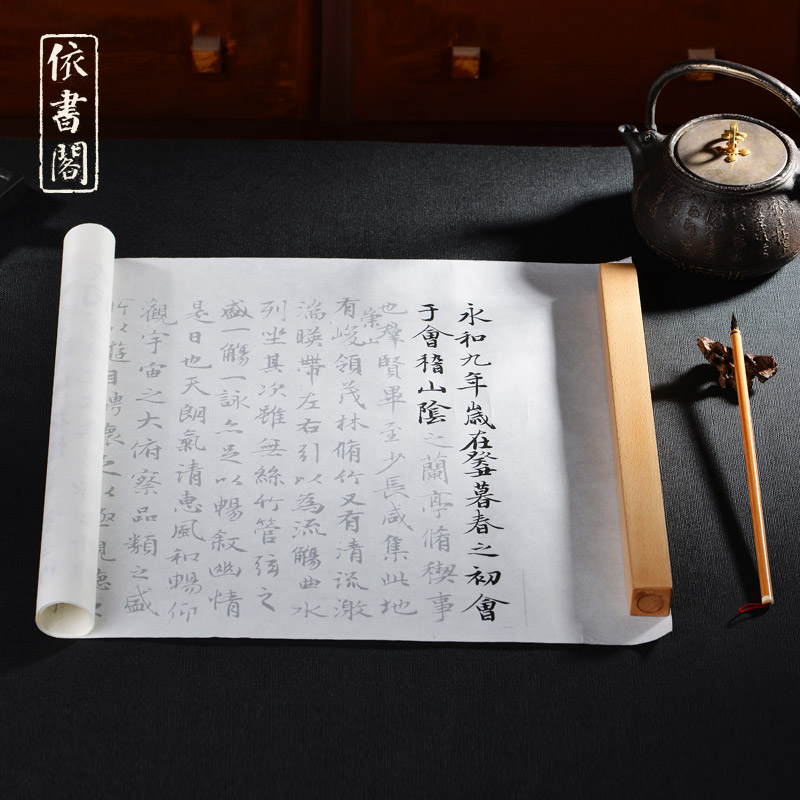 依書閣
永和九年歲在癸丑暮春之初會
于會稽山陰之蘭亭脩稧事
也羣賢畢至少長咸集此地
崇山
有峻領茂林脩竹又有清流激
湍暎帶左右引以為流觴曲水
列坐其次雖無絲竹管弦之
盛一觴一詠亦足以暢敘幽情
是日也天朗氣清惠風和暢仰
觀宇宙之大俯察品類之盛
所以遊目騁懷足以極視聽之